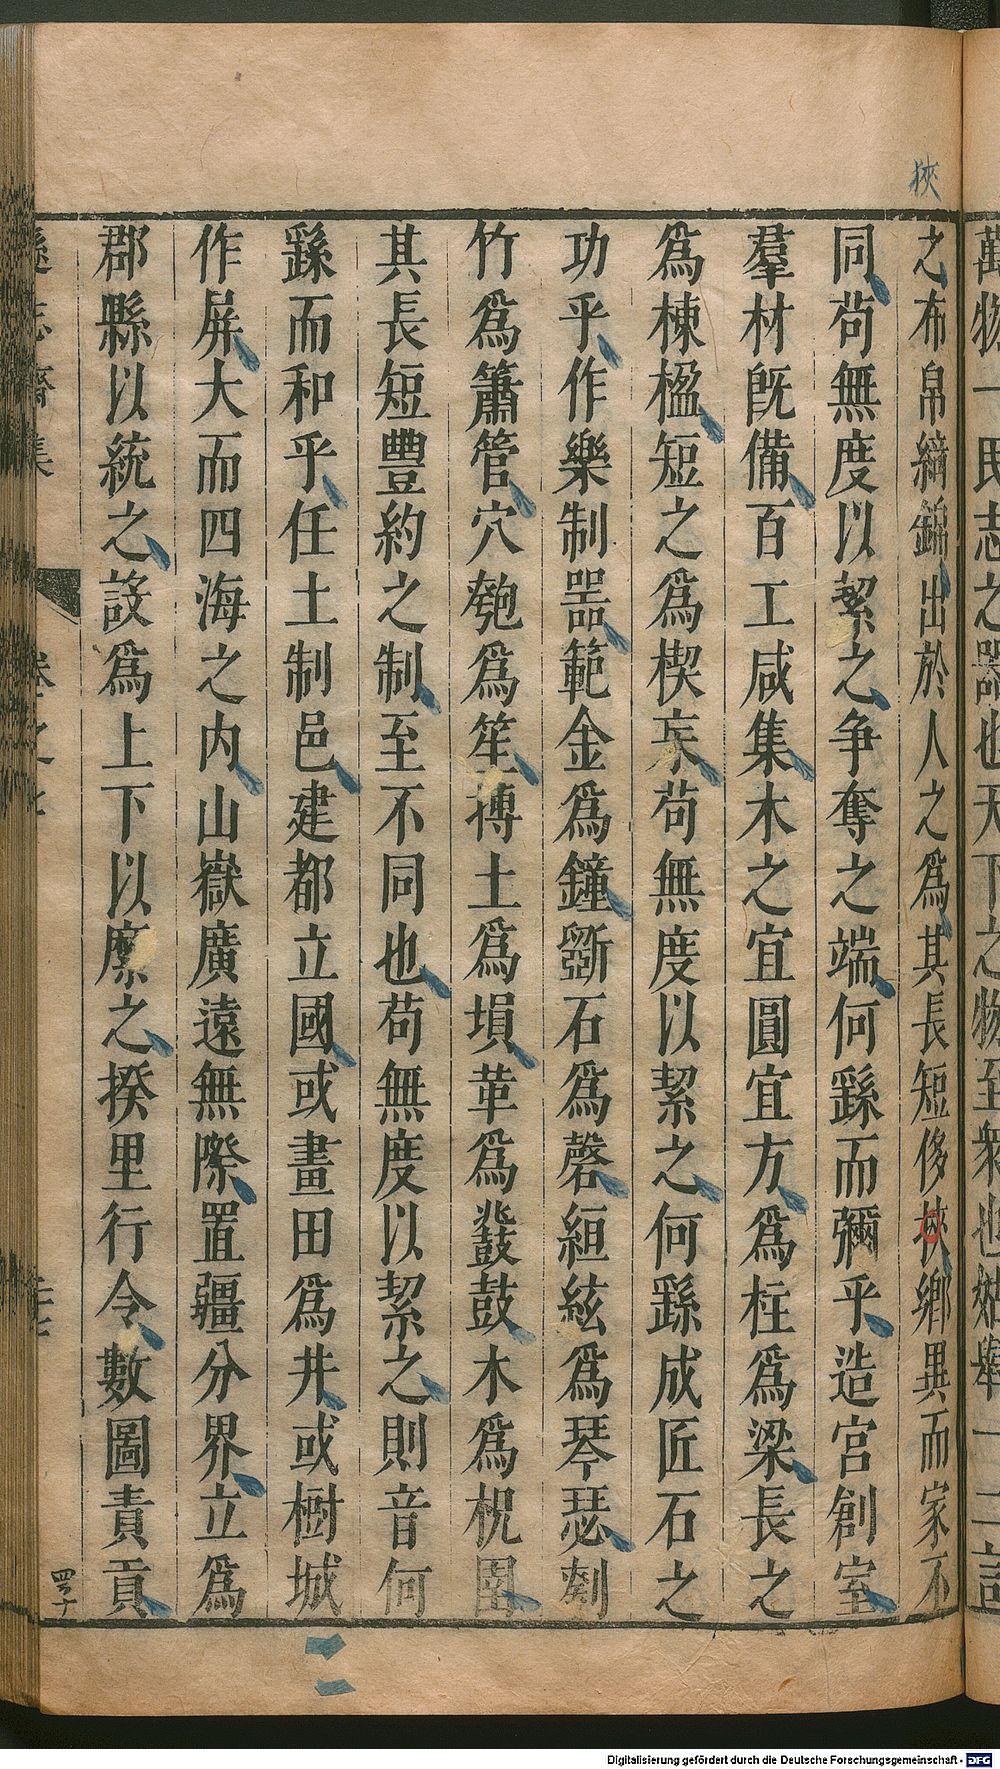 狹
萬物一民志之器也天下之物至衆也姑舉一二言
之布帛纊錦出於人之爲其長短侈狹鄉異而家不
同苟無度以絜之争奪之端何繇而彌乎造宮創室
羣材旣備百工咸集木之宜圓宜方爲柱爲梁長之
爲棟楹短之爲楔杗苟無度以絜之何繇成匠石之
功乎作樂制器範金爲鐘斲石爲磬絙絃爲琴瑟剡
竹爲簫管穴匏爲笙摶土爲塤革爲鼗鼓木爲柷圉
其長短豐約之制至不同也苟無度以絜之則音何
繇而和乎任土制邑建都立國或畫田爲井或樹城
作屏大而四海之内山嶽廣遠無際置疆分界立爲
郡縣以統之設爲上下以縻之揆里行令數圖責貢
遜志齋集 卷之七
四子十
Digitalisierung gefördert durch die Deutsche Forschungsgemeinschaft - DFG